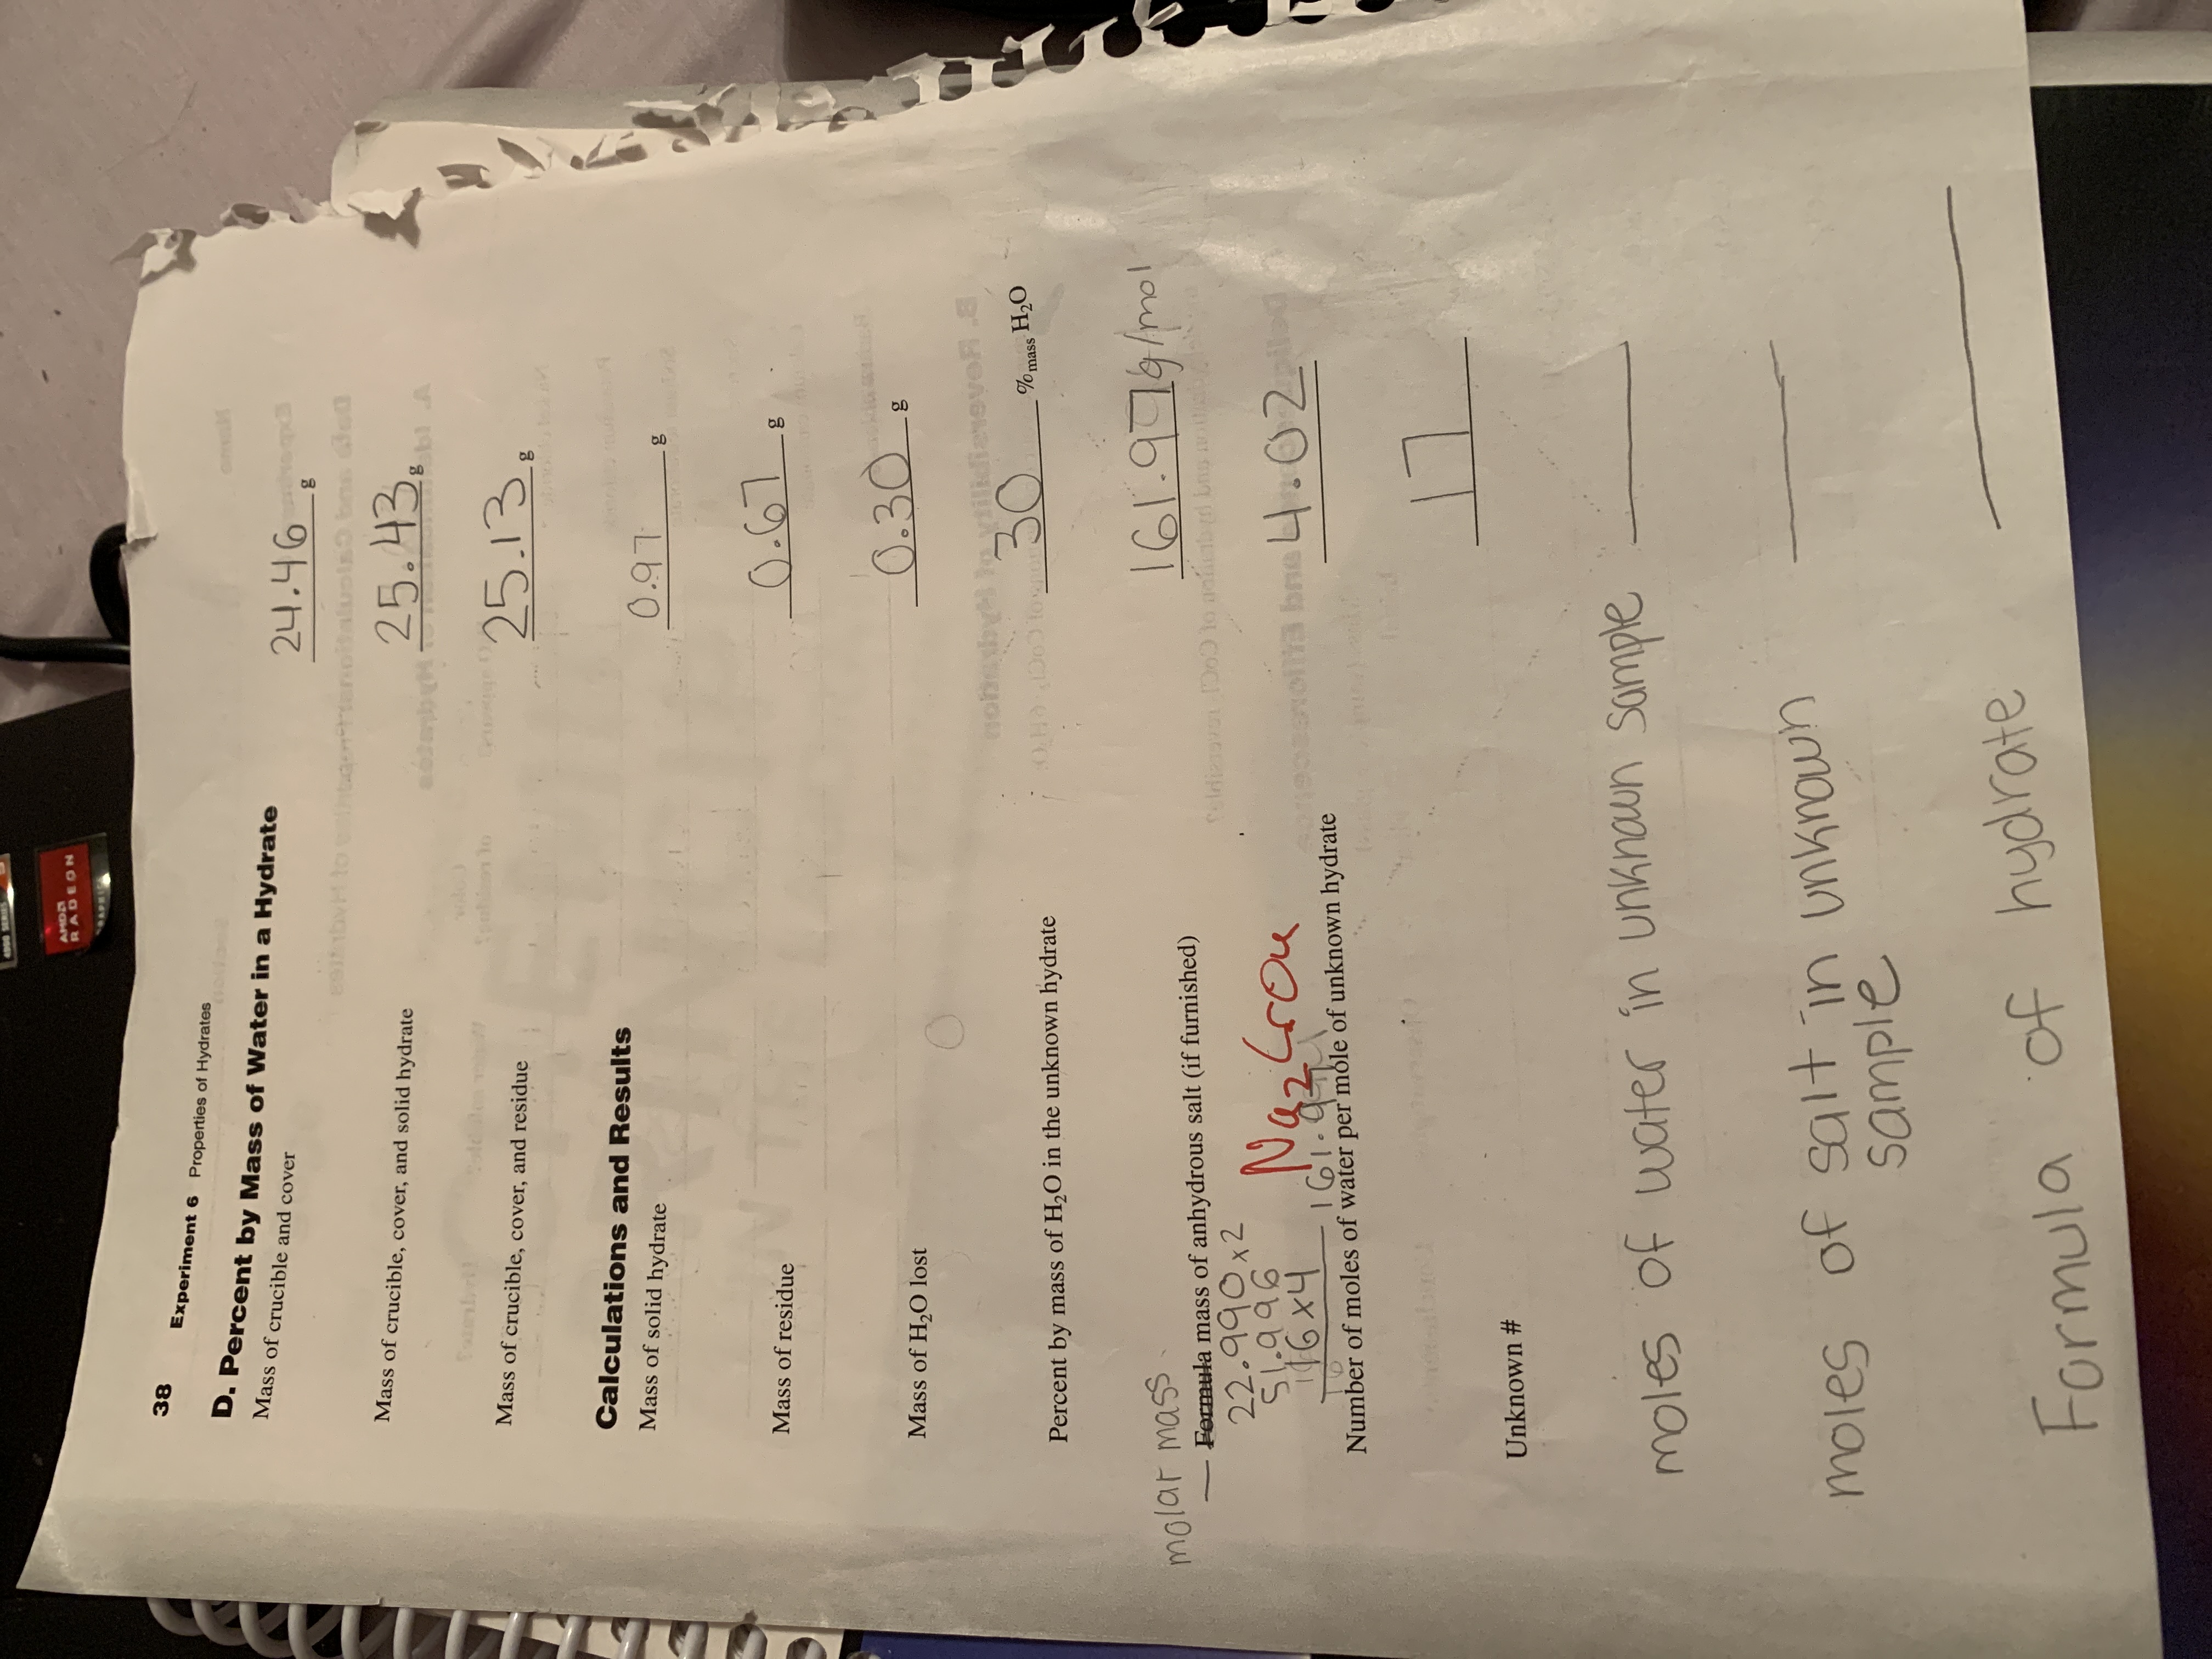 38 Experiment 6 Properties of Hydrates
D. Percent by Mass of Water in a Hydrate
Mass of crucible and cover 24.46 g
Mass of crucible, cover, and solid hydrate 25.43 g
Mass of crucible, cover, and residue 25.13 g
Calculations and Results
Mass of solid hydrate 0.97 g
Mass of residue 0.67 g
Mass of H₂O lost 0.30 g
Percent by mass of H₂O in the unknown hydrate 30 %mass H₂O
molar mass
Formula mass of anhydrous salt (if furnished) 161.97g/mol
22.990 x2
51.996
16 x4
Na₂CrO4
161.97
Number of moles of water per mole of unknown hydrate 4.02
Unknown # 17
moles of water in unknown sample
moles of salt in unknown
sample
Formula of hydrate
AMD
RADEON
GRAPHICS